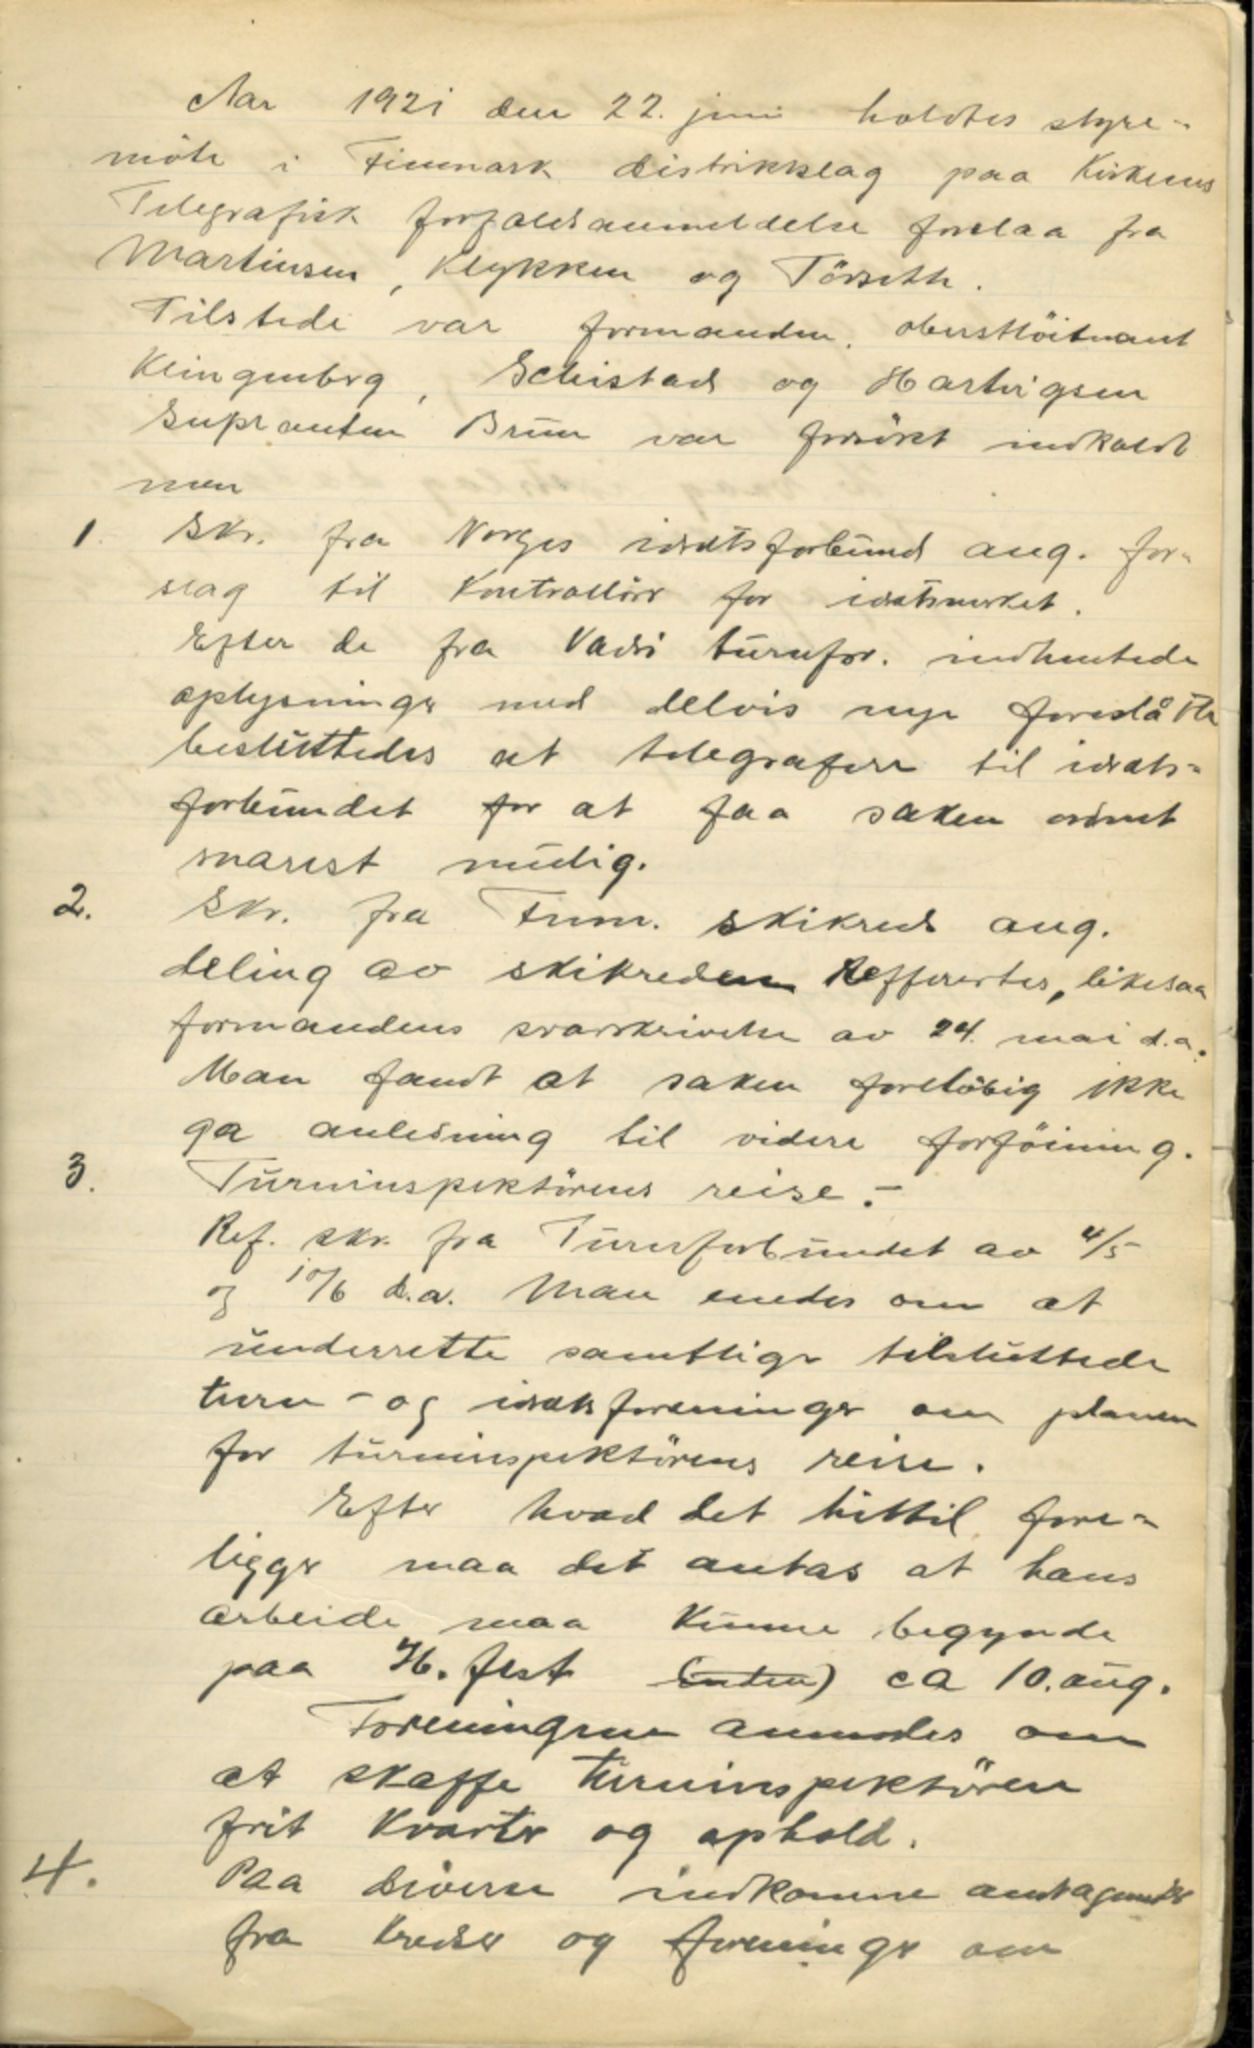 Aar 1921 den 22. juni holdtes styre-
möte i Finmark distriktslag paa Kirkenes
Telegrafisk forfaldsanmeldelse forelaa fra
Martinsen, Klykken og Törseth.
Tilstede var formanden, oberstlöitnant
Klingenberg, Schistad og Hartvigsen
Suplanten Brun var forsökt indkaldt
men
1. Skr. fra Norges idrætsforbund ang. for-
slag til Kontrollörer for idrætsmerket.
Efter de fra Vadsö turnfor. indhentede
oplysninger med delvis nye foreslåtte
besluttedes at telegrafere til idræts-
forbundet for at faa saken ordnet
snarest mulig.
2. Skr. fra Finm. skikreds ang.
deling av skikredsen Reffereertes, likesaa
formandens svarskrivelse av 24. mai d.a.
Man fandt at saken foreløbig ikke
ga anledning til videre forföining.
3. Turninspektörens reise.-
Ref. skr. fra Turnforbundet av 4/5
og 10/6 d.a. Man enedes om at
underrette samtlige tilsluttede
turn- og idrætsforeninger om planen
for turninspektörens reise.
Efter hvad det hittil fore-
ligger maa det antas at hans
arbeide maa kunne begynde
paa H.fest (enten) ca 10. aug.
Foreningene anmodes om
at skaffe turninspektören
frit Kvarter og ophold.
4. Paa diverse indkomne andragender
fra kredser og foreninger om